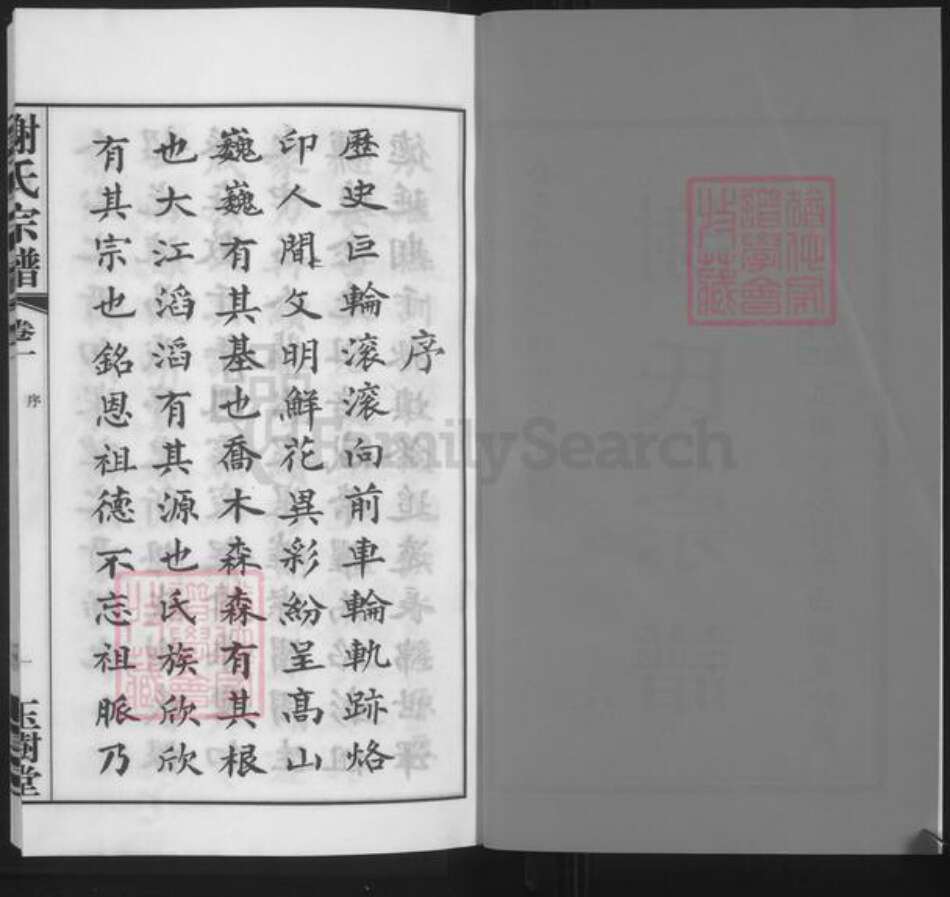 序
歷史巨輪滾滾向前車輪軌跡烙
印人間文明鮮花異彩紛呈髙山
巍巍有其基也喬木森森有其根
也大江滔滔有其源也氏族欣欣
有其宗也銘恩祖德不忘祖脈乃
謝氏宗譜
卷一
序
一
玉樹堂
FamilySearch